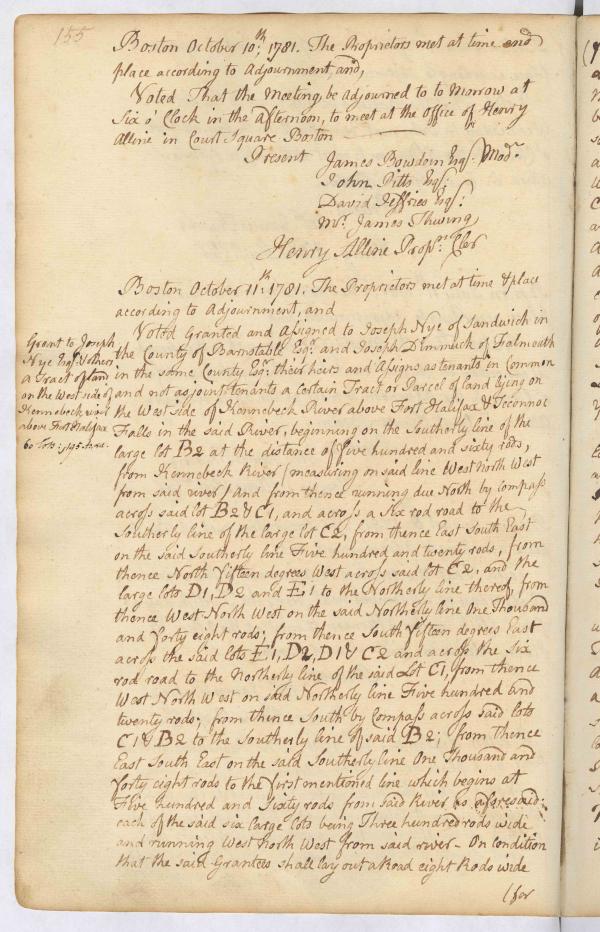 155
Boston October 10th; 1781. The Proprietors met at time and
place according to Adjournment, and,
Voted That the Meeting, be adjourned to to Morrow at
Six o' Clock in the afternoon, to meet at the Office of Henry
Alline in Court Square Boston
Present James Bowdoin Esqr: Modr.
John Pitts Esqr:
David Jeffries Esqr:
Mr. James Thwing
Henry Alline Propr.s Cler
Boston October 11th: 1781. The Proprietors met at time & place
according to Adjournment, and
Voted Granted and Assigned to Joseph Nye of Sandwich in
the County of Barnstable Esqr. and Joseph Dimmuck of Falmouth
in the same County Esqr. their heirs and Assigns as tenants in Common
and not as joint tenants a Certain Tract or Parcel of land lying on
the West side of Kennebeck River above Fort Halifax & Teconnoc
Falls in the said River, beginning on the Southerly line of the
large lot B2 at the distance of five hundred and sixty rods,
from Kennebeck River (measuring on said line West North West
from said river) And from thence running due North by compass
across said lot B2 & C1, and across a Six rod road to the
Southerly line of the large lot C2, from thence East South East
on the said Southerly line Five hundred and twenty rods, from
thence North Fifteen degrees West across said lot C2, and the
large lots D1, D2 and E1 to the Northerly line thereof, from
thence West North West on the said Northerly line One Thousand
and forty eight rods; from thence South Fifteen degrees East
across the said lots E1, D2, D1 & C2 and across the six
rod road to the Northerly line of the said Lot C1, from thence
West North West on said Northerly line Five hundred and
twenty rods; from thence South by Compass across said lots
C1 & B2 to the Southerly line of said B2; from thence
East South East on the said Southerly line One Thousand and
forty eight rods to the first mentioned line which begins at
Five hundred and Sixty rods from said River as aforesaid;
each of the said six large lots being Three hundred rods wide
and running West North West from said river - On condition
that the said Grantees shall lay out a Road eight Rods wide
(for
Grant to Joseph
Nye Esqr. & others
a Tract of land
on the West side of
Kennebeck river
above Fort Halifax